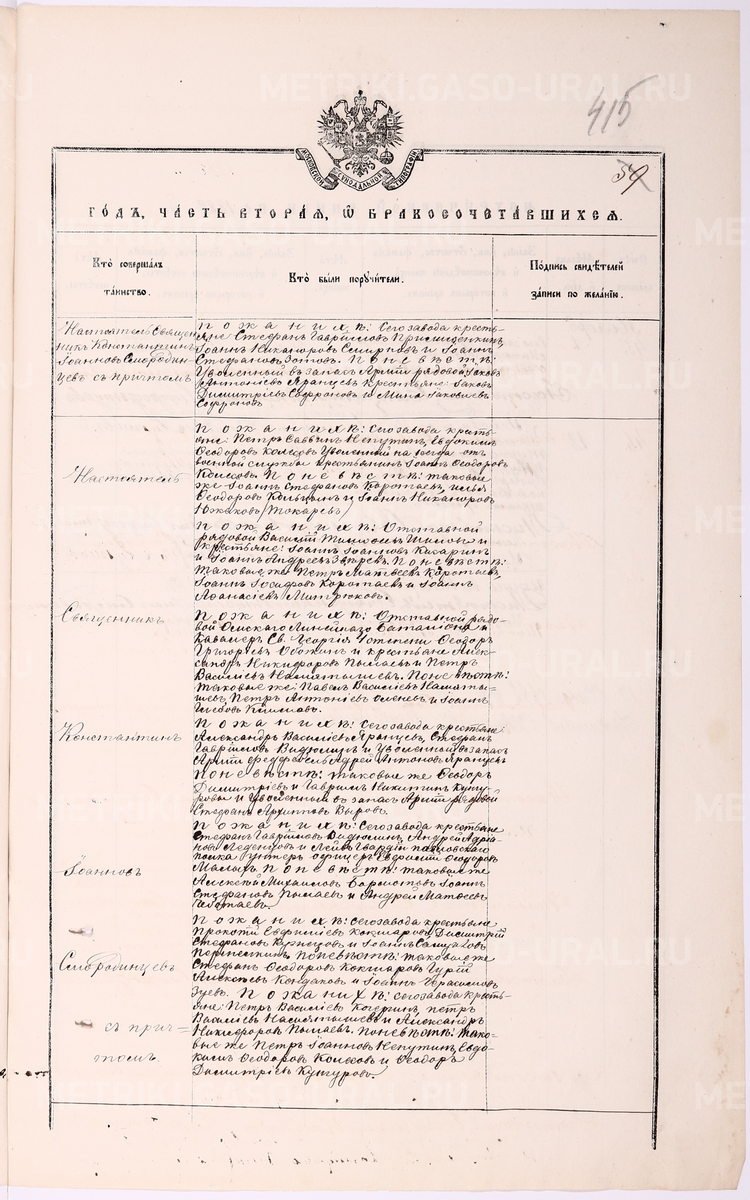 METRIKI.GASO-URAL.RU
415
МОСКОВСКОЙ СѴНОДАЛЬНОЙ ТИПОГРАФІИ
59
ГОДЪ, ЧАСТЬ ВТОРАЯ, Ѿ БРАКОСОЧЕТАВШИХСЯ.
Кто совершалъ
таинство.
Кто были поручители.
Подпись свидѣтелей
записи по желанію.
Настоятель Священ
никъ Константинъ
Іоанновъ Смородин
цевъ съ причтомъ
По женихѣ: Сего завода кресть
яне Стефанъ Гавриловъ
Іоаннъ Никаноровъ Смирновъ и Іоаннъ
Стефановъ Зотовъ. По невѣстѣ:
Уволенный въ запасъ Арміи рядовой Іаковъ
Антоніевъ Яранцевъ крестьяне: Іаковъ
Димитріевъ Софроновъ и Мина Іаковлевъ
Софроновъ
Настоятель
По женихѣ: Сего завода кресть-
яне: Петръ Саввинъ Непутинъ, Евдокимъ
Ѳеодоровъ Колясовъ Уволенный на всегда отъ
военной службы крестьянинъ Іоаннъ Ѳеодоровъ
По невѣстѣ: таковые
же Іоаннъ Стефановъ Коротаевъ, Илья
Ѳеодоровъ и Іоаннъ Никаноровъ
Южаковъ (Токаревъ)
По женихѣ: Отставной
рядовой Василій
крестьяне: Іоаннъ Іоанновъ Казаринъ
и Іоаннъ Андреевъ Звѣревъ. По невѣстѣ:
таковые же Петръ Матвеевъ Коротаевъ,
Іоаннъ Іосифовъ Коротаевъ и Іоаннъ
Аѳанасіевъ Митрюковъ.
Священникъ
По женихѣ: Отставной рядо-
вой Омскаго Линейнаго баталіона и
Кавалеръ Св. Георгія 4 степени Ѳеодоръ
Григорьевъ и крестьяне Алек-
сандръ Никифоровъ Пылаевъ и Петръ
Василіевъ Намятышевъ. По невѣстѣ:
таковые же: Павелъ Василіевъ Намяты-
шевъ, Петръ Антоніевъ и Іоаннъ
Глѣбовъ Климовъ.
Константинъ
По женихѣ: Сего завода крестьяне:
Александръ Василіевъ Яранцевъ, Стефанъ
Гавриловъ Видюлинъ и Уволенный въ запасъ
Арміи фельдфебель Андрей Антоновъ Яранцевъ
По невѣстѣ: таковые же Ѳеодоръ
Димитріевъ и Гавріилъ Никитинъ Кунгу-
ровы и Уволенный въ запасъ Арміи рядовой
Стефанъ Архиповъ Выровъ.
По женихѣ: Сего завода крестьяне
Стефанъ Гавриловъ Видюлинъ, Андрей Адріа-
новъ Леденцовъ и Лейбъ Гвардіи павловскаго
полка Унтеръ офицеръ Евфимій Ѳеодоровъ
По невѣстѣ: таковые же
Алексѣй Михаиловъ Іоаннъ
Стефановъ Пылаевъ и Андрей Матвеевъ
Іоанновъ
По женихѣ: Сего завода крестьяне
Прокопій Евфиміевъ Кокшаровъ, Димитрій
Стефановъ Кузнецовъ и Іоаннъ
По невѣстѣ: таковые же
Стефанъ Ѳеодоровъ Кокшаровъ Гурій
Алексѣевъ Кондаковъ и Іоаннъ Герасимовъ
Зуевъ. По женихѣ: Сего завода кресть-
яне: Петръ Василіевъ петръ
Василіевъ Намятышевъ и Александръ
Никифоровъ Пылаевъ. По невѣстѣ: тако-
вые же Петръ Іоанновъ Непутинъ, Евдо-
кимъ Ѳеодоровъ Колясовъ и Ѳеодоръ
Димитріевъ Кунгуровъ.
Смородинцевъ
съ прич=
томъ.